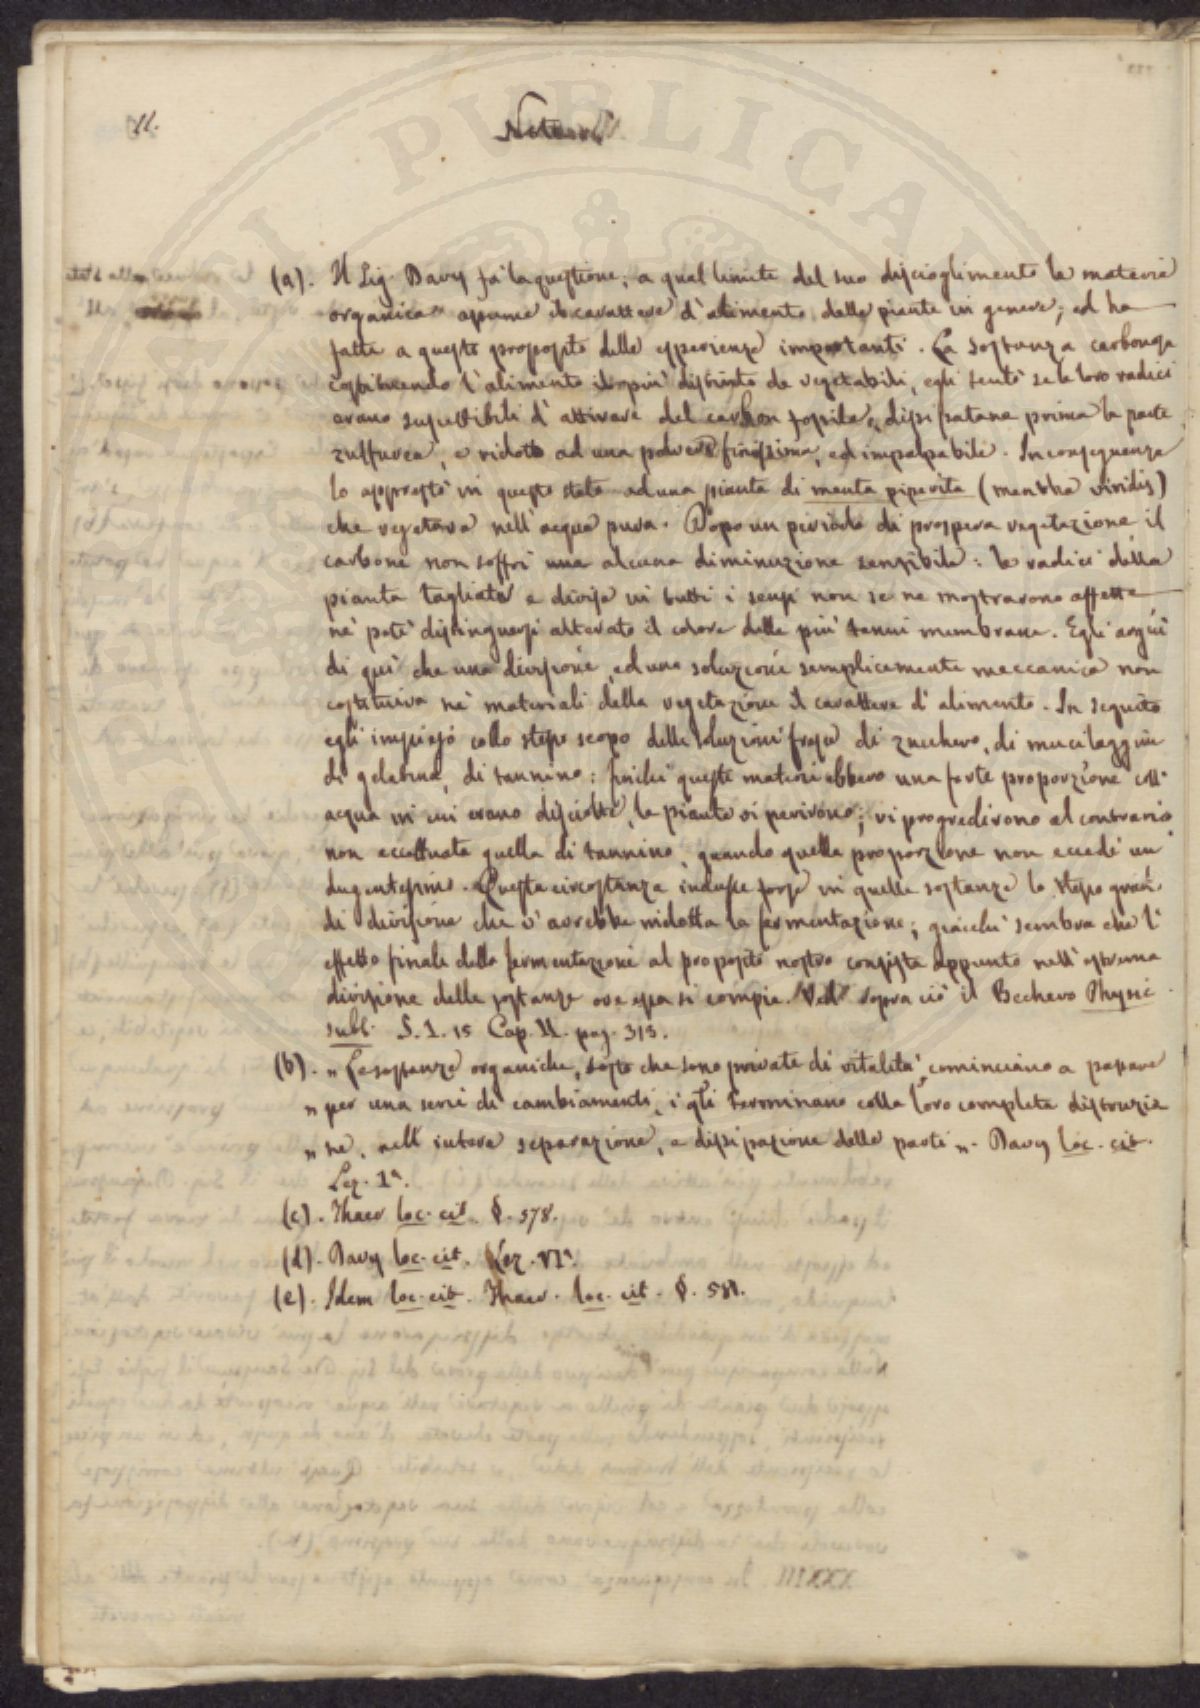 11.
Note
(a). Il Sig. Davy fà la questione, a qual limite del suo discioglimento la materia
organica assuma il carattere d'alimento delle piante in genere; ed ha
fatte a questo proposito delle esperienze importanti. La sostanza carbonosa
costituendo l'alimento il più distinto de vegetabili, egli tentò se le loro radici
erano suscettibili d'attivare del carbon fossile, dissipatane prima la parte
zulfurea, e ridotto ad una polvere finissima, ed impalpabile. In conseguenza
lo apprestò in questo stato ad una pianta di menta piperita (mentha viridis)
che vegetava nell'acqua pura. Dopo un periodo di prospera vegetazione il
carbone non soffrì una alcuna diminuzione sensibile: le radici della
pianta tagliate e divise in tutti i sensi non se ne mostrarono affette
nè potè distinguersi alterato il colore delle più tenui membrane. Egli arguì
di quì che una divisione, ed una soluzione semplicemente meccanica non
costituiva ne' materiali della vegetazione il carattere d'alimento. In seguito
egli impiegò collo stesso scopo delle soluzioni di zucchero, di mucilaggine
di gelatina, di tannino: finchè queste materie ebbero una forte proporzione coll'
acqua in cui erano disciolte, le piante vi perirono; vi progredirono al contrario
non eccettuata quella di tannino, quando quella proporzione non eccedè un
dugentesimo. Questa circostanza indusse forse in quelle sostanze lo stesso grado
di divisione che v'avrebbe indotta la fermentazione; giacchè sembra che l'
effetto finale della fermentazione al proposito nostro consista appunto nell'estrema
divisione delle sostanze ove essa si compie. Ved. sopra ciò il Bechero Physic.
sub. S. 1. 15 Cap. II. pag. 313.
(b). „ Le sostanze organiche, tosto che sono private di vitalità, cominciano a passare
„ per una serie di cambiamenti, i qli terminano colla loro completa distruzio
„ ne, nell'intera separazione, e dissipazione delle parti „. Davy loc. cit.
Lez. 1ª.
(c). Thaer loc. cit. §. 578.
(d). Davy loc. cit. Lez. VIª.
(e). Idem loc. cit. Thaer. loc. cit. §. 581.